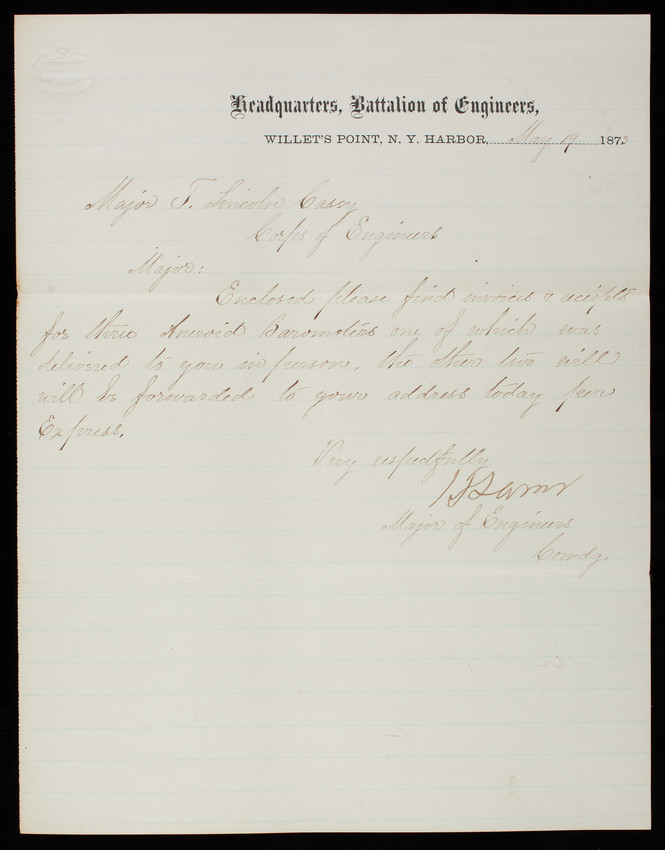 Headquarters, Battalion of Engineers,
WILLET'S POINT, N. Y. HARBOR, May 19 1873
Major T. Lincoln Casey
Corps of Engineers
Major:
Enclosed please find invoices & receipts
for three Aneroid Barometers one of which was
delivered to you in person, the other two will
will be forwarded to your address today per
Express.
Very respectfully
Major of Engineers
Comdg.